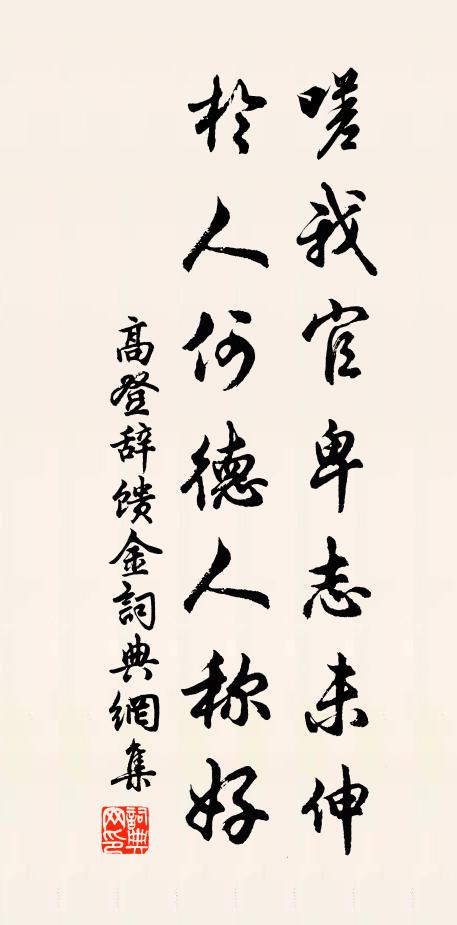 嗟我官卑志未伸
於人何德人称好
高登辞馈金詞典網集
詞典網印